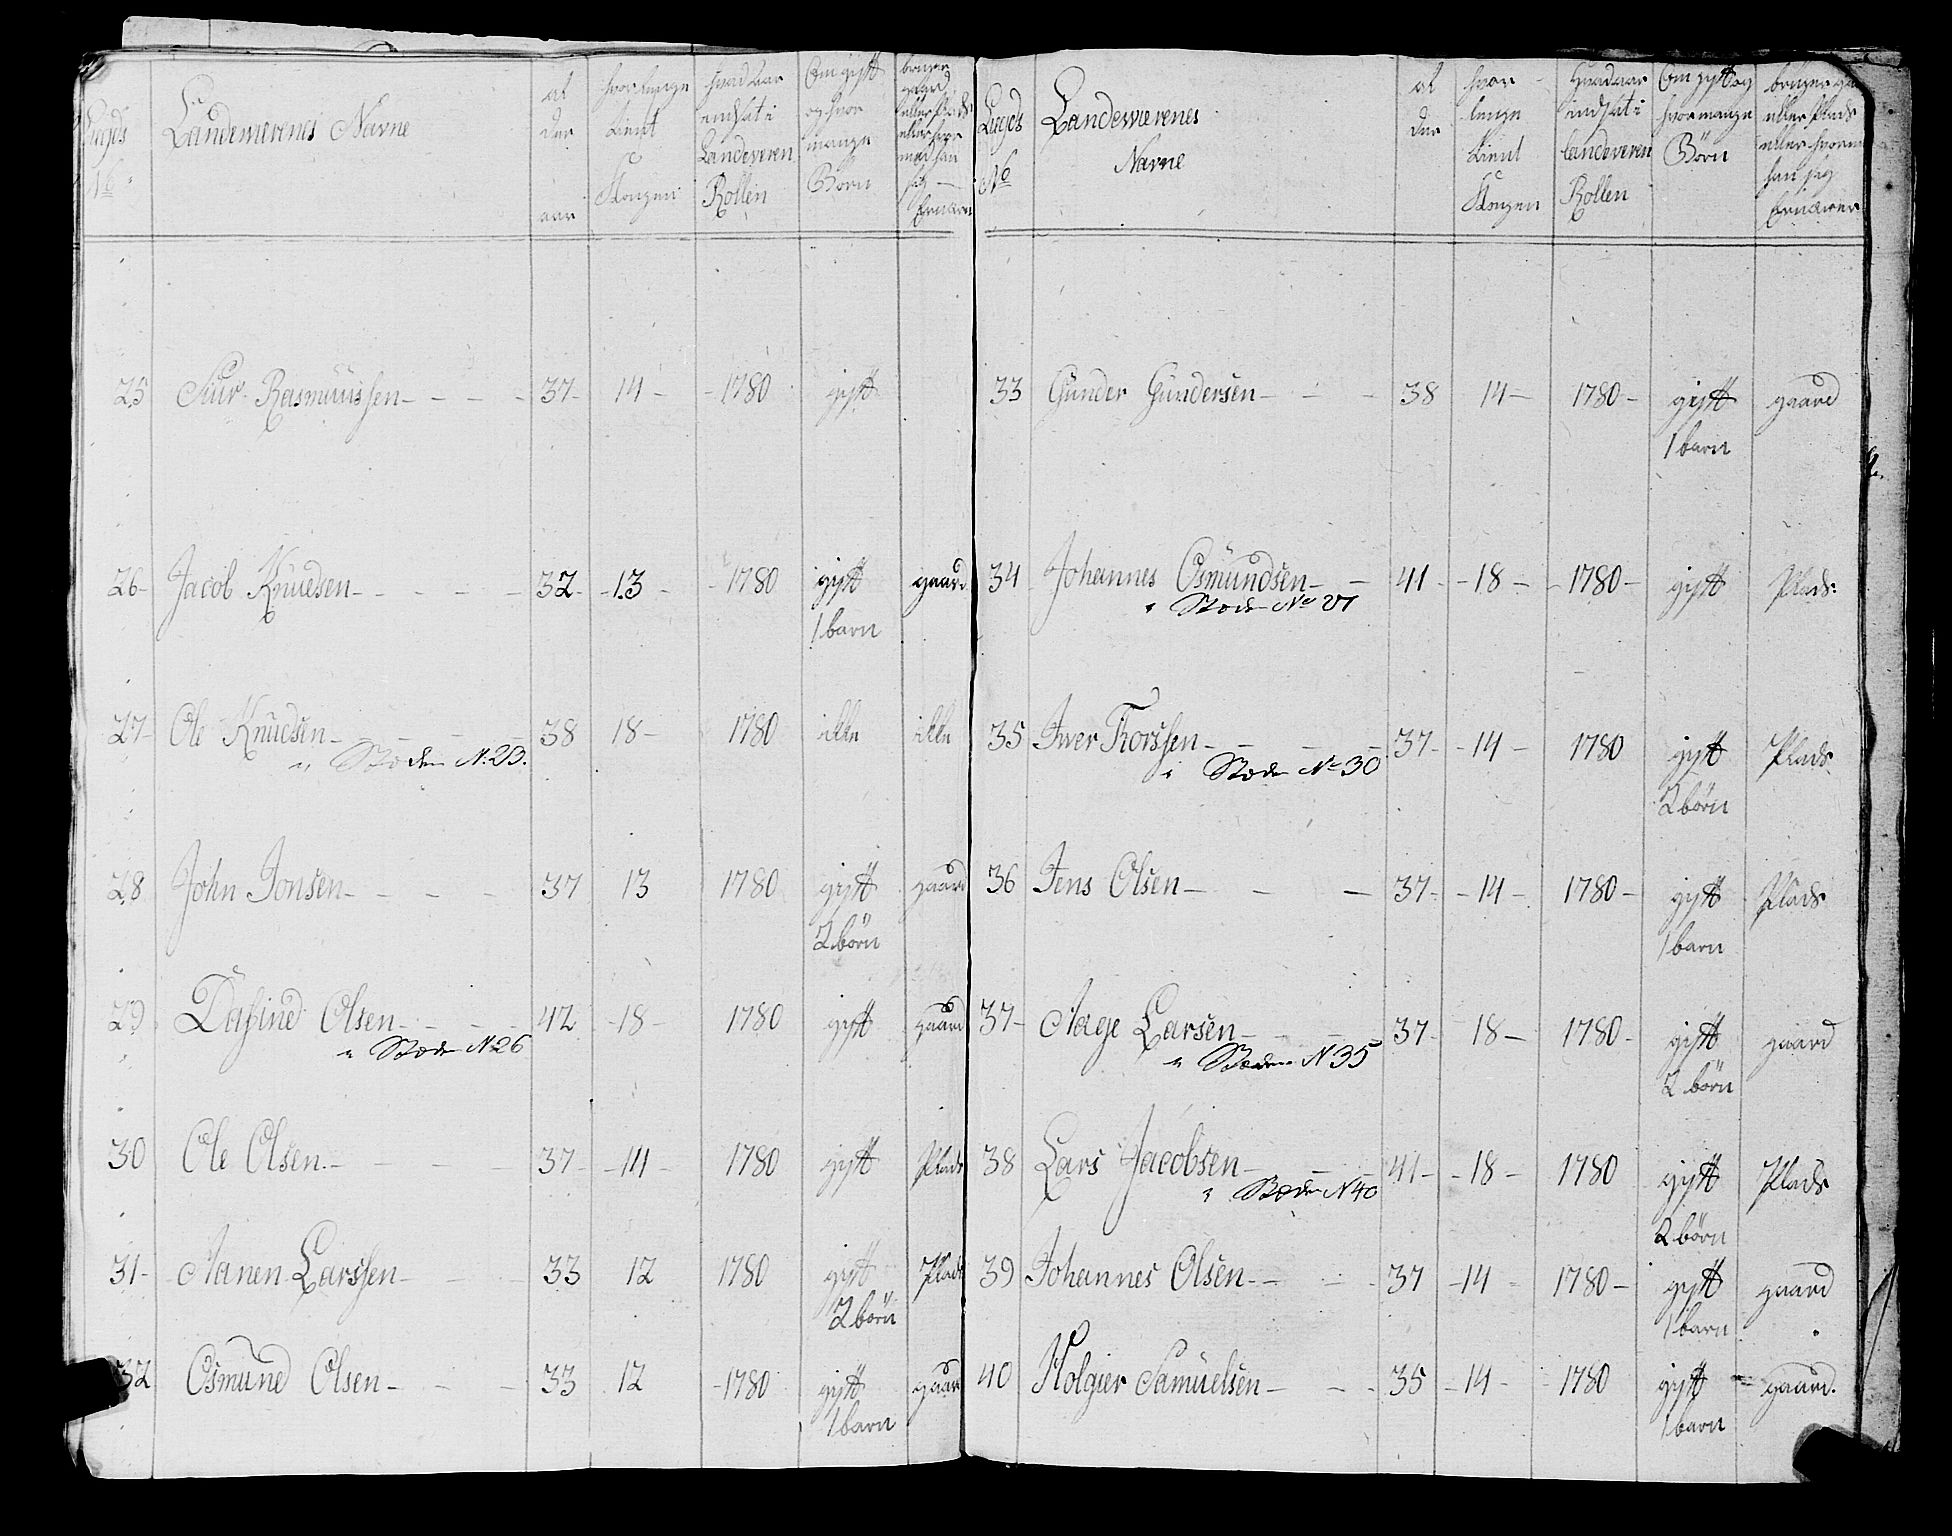 Lægds No
Landeværenes Navne
al der aar
hvor lenge tient Kongen
hvad aar indsat i Landeveren Rollen
Om gift og hvor mange Børn
bruger gaard eller Plads eller hvor med han sig Ernærer
25 Siur Rasmuussen 37 14 1780 gift
26 Jacob Knudsen 32 13 1780 gift gaard
1 barn
27 Ole Knudsen 38 18 1780 ikke ikke
" Støden N. 23.
28 John Jonsen 37 13 1780 gift gaard
2 børn
29 Dafind Olsen 42 18 1780 gift gaard
" Støden N 26
30 Ole Olsen 37 14 1780 gift Plads
31 Aanen Larssen 33 12 1780 gift Plads
2 børn
32 Osmund Olsen 33 12 1780 gift gaard
1 barn
Lægds No
Landeværenes
Navne
al der
hvor lenge tient Kongen
Hvad aar indsat i landeveren Rollen
Om gift og hvor mange Børn
bruger eller Plads eller hvorm han sig Ernærer
33 Gunder Gundersen 38 14 1780 gift gaard
1 barn
34 Johannes Osmundsen 41 18 1780 gift Plads
" Støden No 27
35 Iver Thorssen 37 14 1780 gift Plads
" Støden No 30
2 børn
36 Jens Olsen 37 14 1780 gift Plads
1 barn
37 Aage Larsen 37 18 1780 gift gaard
" Støden N 35
2 børn
38 Lars Jacobsen 41 18 1780 gift Plads
" Støden N 40
2 børn
39 Johannes Olsen 37 14 1780 gift gaard
1 barn
40 Holgier Samuelsen 35 14 1780 gift gaard.
1 barn